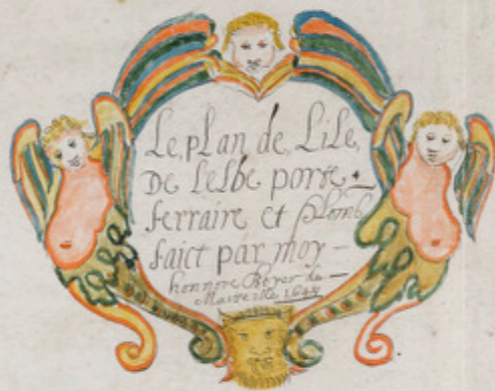 Le plan de Lile
De Lelbe porte
ferraire et plomb
faict par moy
honnore Boyer de
Marseille 1648